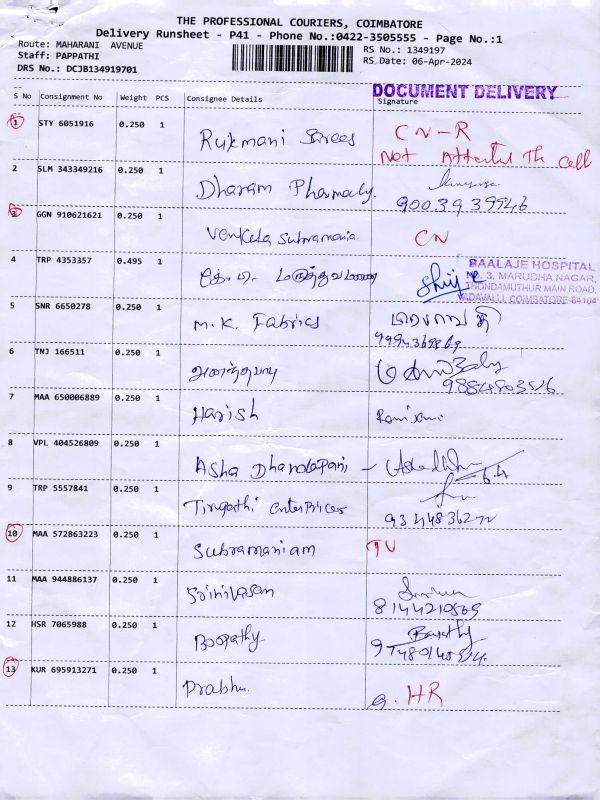 THE PROFESSIONAL COURIERS, COIMBATORE
Delivery Runsheet - P41 - Phone No.:0422-3505555 - Page No.:1
Route: MAHARANI AVENUE
RS No.: 1349197
Staff: PAPPATHI
RS Date: 06-Apr-2024
DRS No.: DCJB134919701
DOCUMENT DELIVERY
S No Consignment No Weight PCS Consignee Details Signature
1 STY 6051916 0.250 1
Rukmani Sarees CN-R
Not Attented The Cell
2 SLM 343349216 0.250 1
Dharam Pharmacy. 9003939946
3 GGN 910621621 0.250 1
Venkata Subramania. CN
4 TRP 4353357 0.495 1
கே.ஜி. மருத்துவமனை
BAALAJE HOSPITAL
No. 3, MARUDHA NAGAR,
THONDAMUTHUR MAIN ROAD,
VADAVALLI, COIMBATORE-641041
5 SNR 6650278 0.250 1
M.K. Fabrics
6 TNJ 166511 0.250 1
7 MAA 650006889 0.250 1
Harish
8 VPL 404526809 0.250 1
Asha Dhandapani -
6.4
9 TRP 5557841 0.250 1
Tirupathi EnterPrices
10 MAA 572863223 0.250 1
Subramaniam TV
11 MAA 944886137 0.250 1
Srinivasan
8144210569
12 HSR 7065988 0.250 1
Boopathy Boopathy
13 KUR 695913271 0.250 1
Prabhu. HR